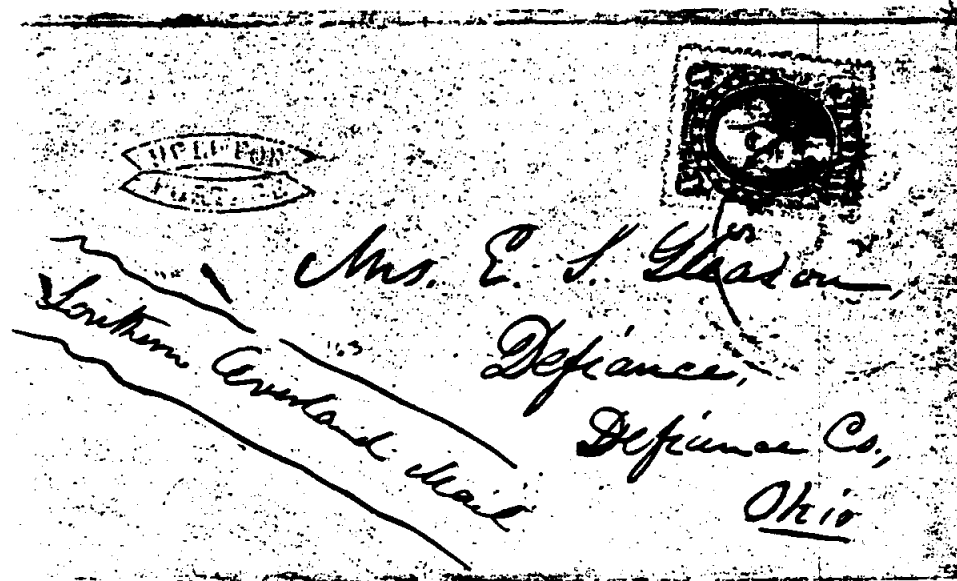 HELD FOR
POSTAGE
Mrs. E. S. Gleason,
Defiance,
Defiance Co.,
Ohio
Southern Overland Mail